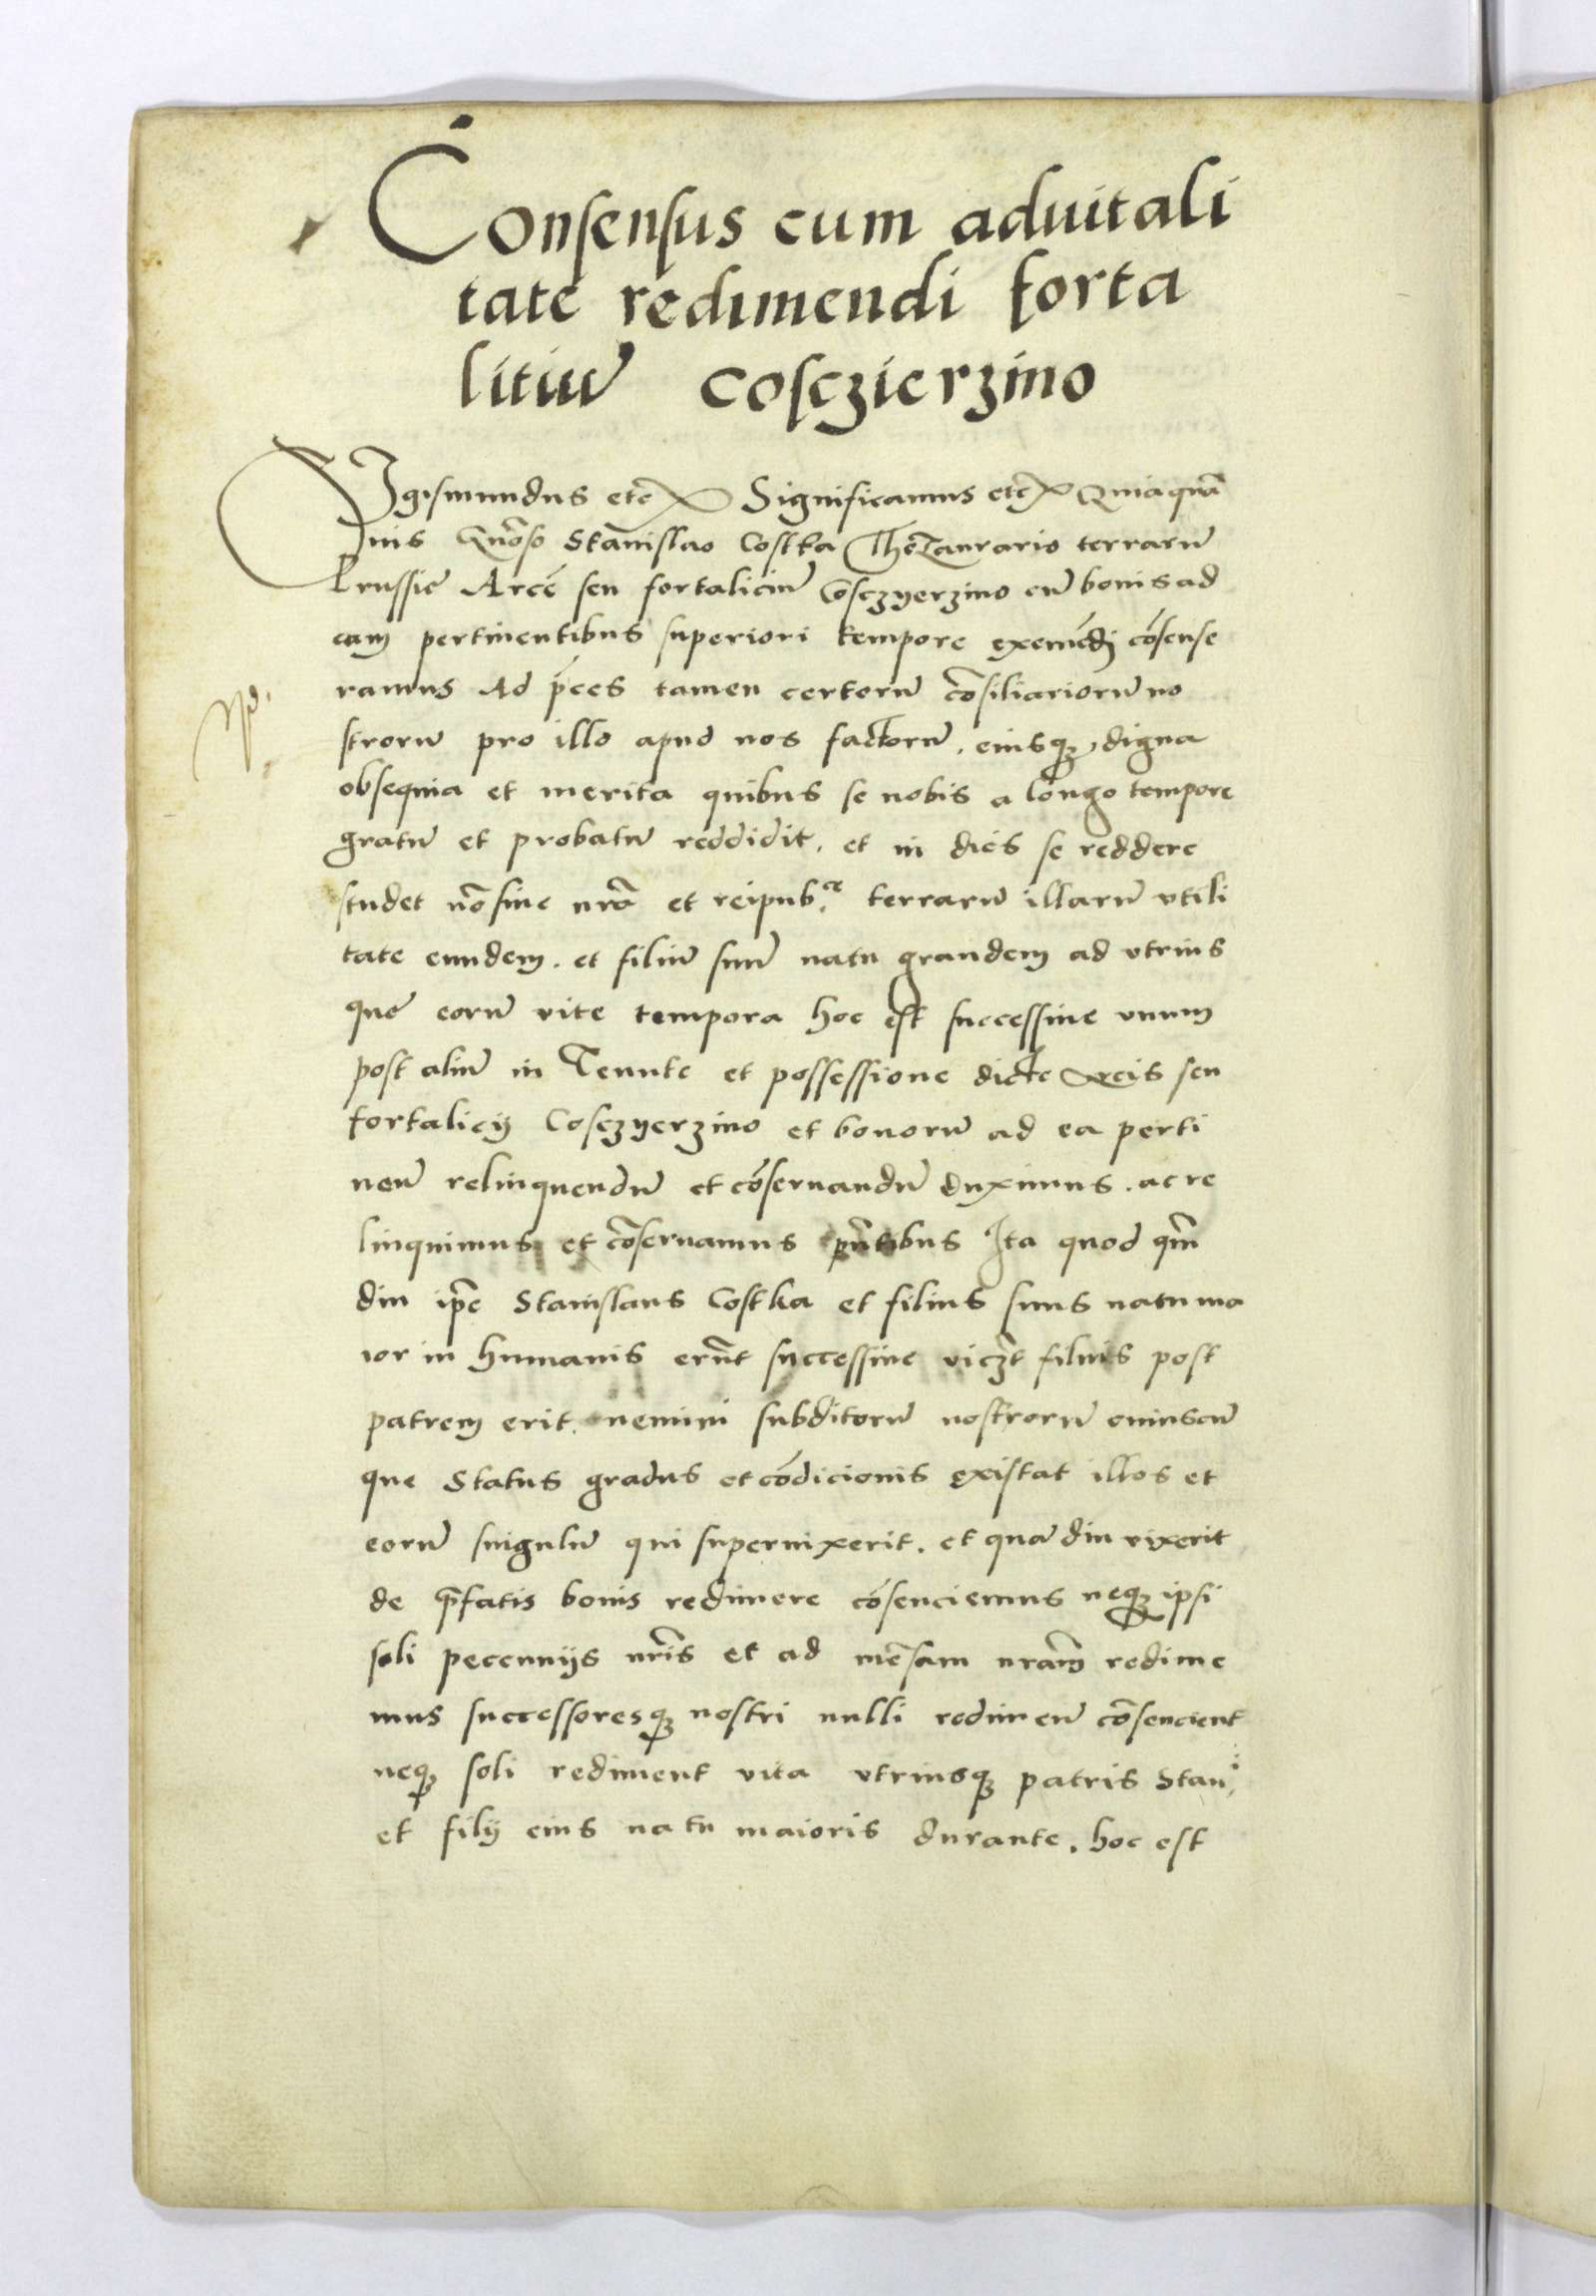 Consensus cum aduitali
tate redimendi forta
litiu̅ Cosczierzino
Sigismundus etc̅ Significamus etc̅ Quia qua̅
uis Gn̅oso Stanislao Costka Thezaurario terraru̅
Prussie Arce̅ seu fortaliciu̅ Cosczyerzino cu̅ bonis ad
eam pertinentibus superiori tempore exeme̅di co̅sense
ramus Ad p̅ces tamen certoru̅ co̅siliarioru̅ no
stroru̅ pro illo apud nos factoru̅. eiusq3 digna
obsequia et merita quibus se nobis a longo tempore
gratu̅ et probatu̅ reddidit. et in dies se reddere
studet no̅ sine nr̅a et reipub.ce terraru̅ illaru̅ vtili
tate eundem. et filiu̅ suu̅ natu grandem ad vtrius
que eoru̅ vite tempora hoc est successiue vnum
post aliu̅ in Tenute et possessione dicte Arcis seu
fortalicij Cosczyerzino et bonoru̅ ad ea perti
nen̅ relinquendu̅ et co̅seruandu̅ duximus. ac re
linquimus et co̅seruamus pn̅tibus Ita quod qm̅
diu ip̅e Stanislaus Costka et filius suus natu ma
ior in humanis eru̅t successiue vicz̅t filius post
patrem erit. nemini subditoru̅ nostroru̅ cuiuscu̅
que Status gradus et co̅dicionis existat illos et
eoru̅ singulu̅ qui superuixerit. et qua̅ diu vixerit
de p̅fatis bonis redimere co̅senciemus neq3 ipsi
soli pecunijs nr̅is et ad me̅sam nr̅am redime
mus successoresq3 nostri nulli redimen̅ co̅sencient
neq3 soli rediment vita vtriusq3 patris Stani.
et filij eius natu maioris durante. hoc est